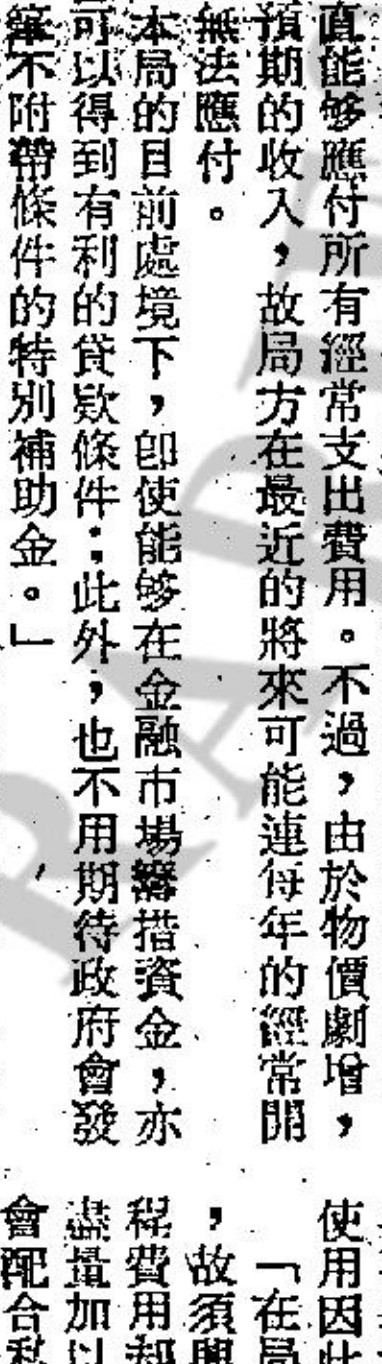 直能够應付所有經常支出費用。不過，由於物價劇增，
預期的收入，故局方在最近的將來可能連每年的經常開
無法應付。
本局的目前處境下，卽使能够在金融市場籌措資金，亦
可以得到有利的貸欵條件；此外，也不用期待政府會發
不附帶條件的特別補助金。」
使用因此
「在局
，故須興
程費用却
盡量加以
會配合私